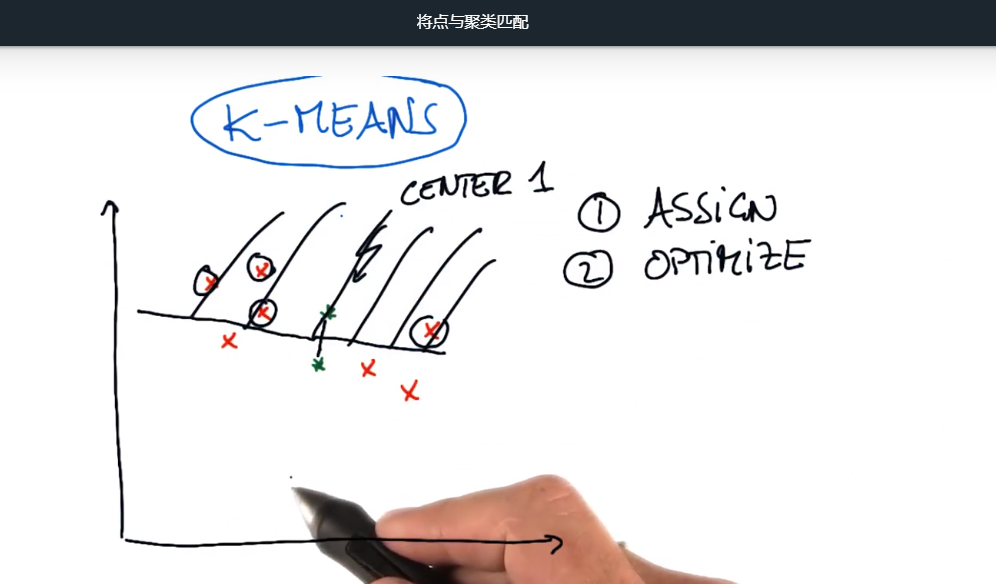 将点与聚类匹配
K-MEANS
CENTER 1
① ASSIGN
② OPTIMIZE